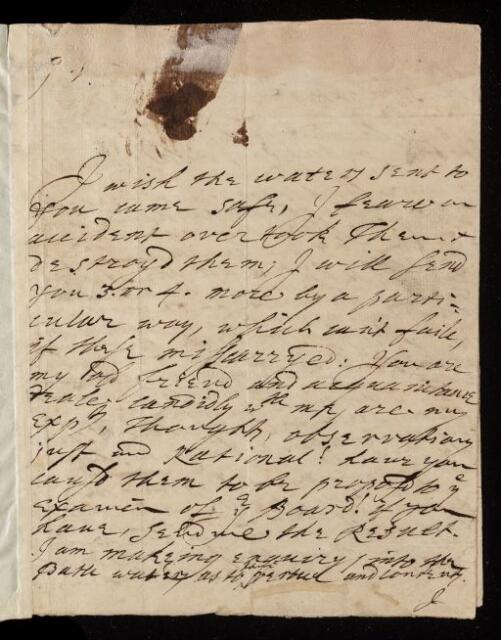 I wish the waters sent to
you came safe, I fear an
accident overtook Them &
destroyd them; I will send
you 3. or 4. more by a parti=
cular way, which can't faile,
if these miscarryed: You are
my old friend and acquaintance
deale candidly wth me, are my
Expts, thoughts, observations
just and Rational? have you
caus'd them to be propos'd to ye
Examen of ye Board? if you
have, send me the Result.
I am makeing enquiry into the
Bath waters as to their virtue and contents.
I